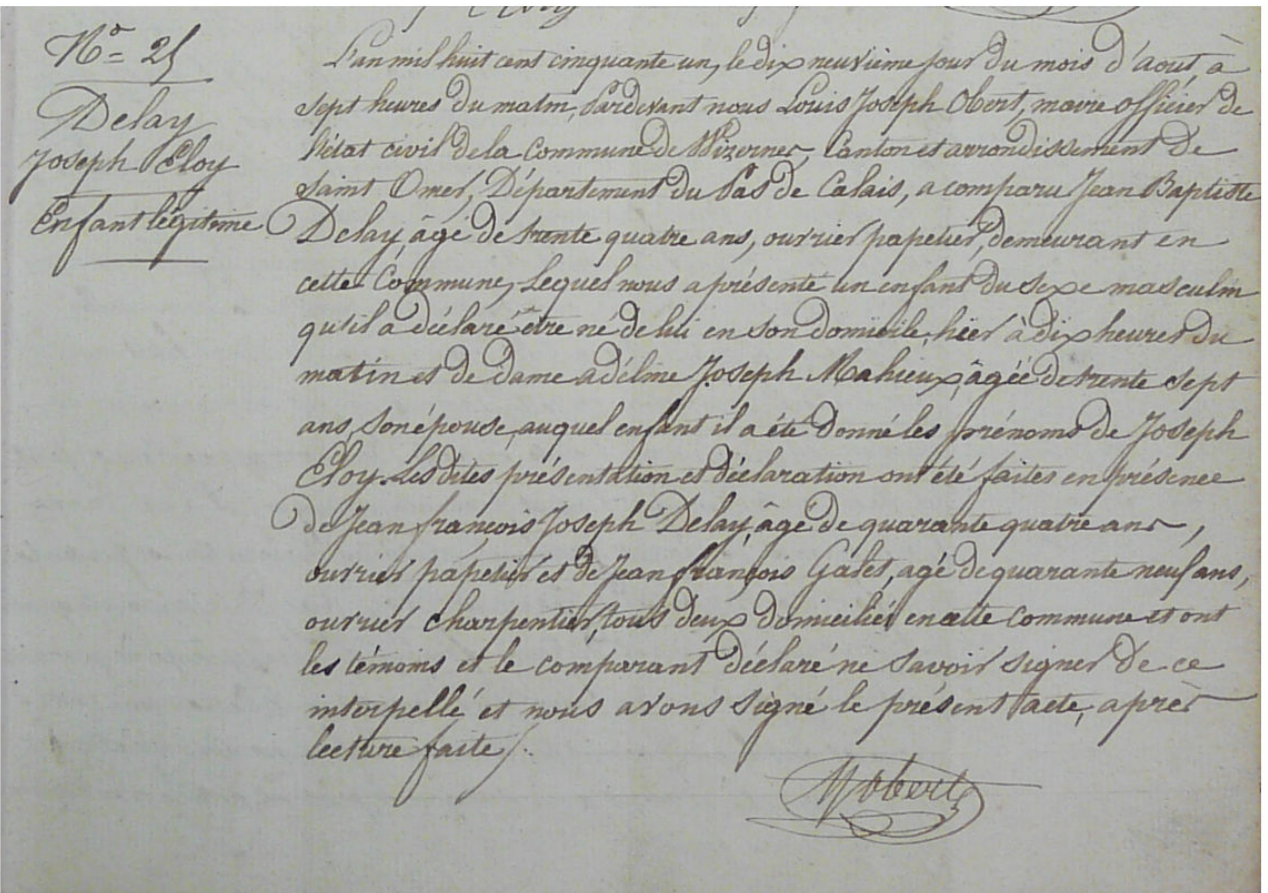 N° 25
Delay
Joseph Eloy
Enfant légitime
L'an mil huit cent cinquante un, le dix neuvième jour du mois d'aout, à
sept heures du matin, Pardevant nous Louis Joseph Obert, maire officier de
l'état civil de la Commune de Wizernes, Canton et arrondissement de
Saint Omer, Département du Pas de Calais, a comparu Jean Baptiste
Delay, âgé de trente quatre ans, ouvrier papetier, demeurant en
cette Commune, Lequel nous a présenté un enfant du sexe masculin
qu'il a déclaré être né de lui en son domicile, hier à dix heures du
matin et de dame adéline Joseph Mahieux, âgée de trente sept
ans, son épouse, auquel enfant il a été donné les prénoms de Joseph
Eloy. Les dites présentation et déclaration ont été faites en présence
de Jean françois Joseph Delay, âgé de quarante quatre ans,
ouvrier papetier et de Jean françois Galet, agé de quarante neuf ans,
ouvrier charpentier, tous deux domiciliés en cette commune et ont
les témoins et le comparant déclaré ne savoir signer de ce
interpellé et nous avons signé le présent acte, après
lecture faite/.
Obert